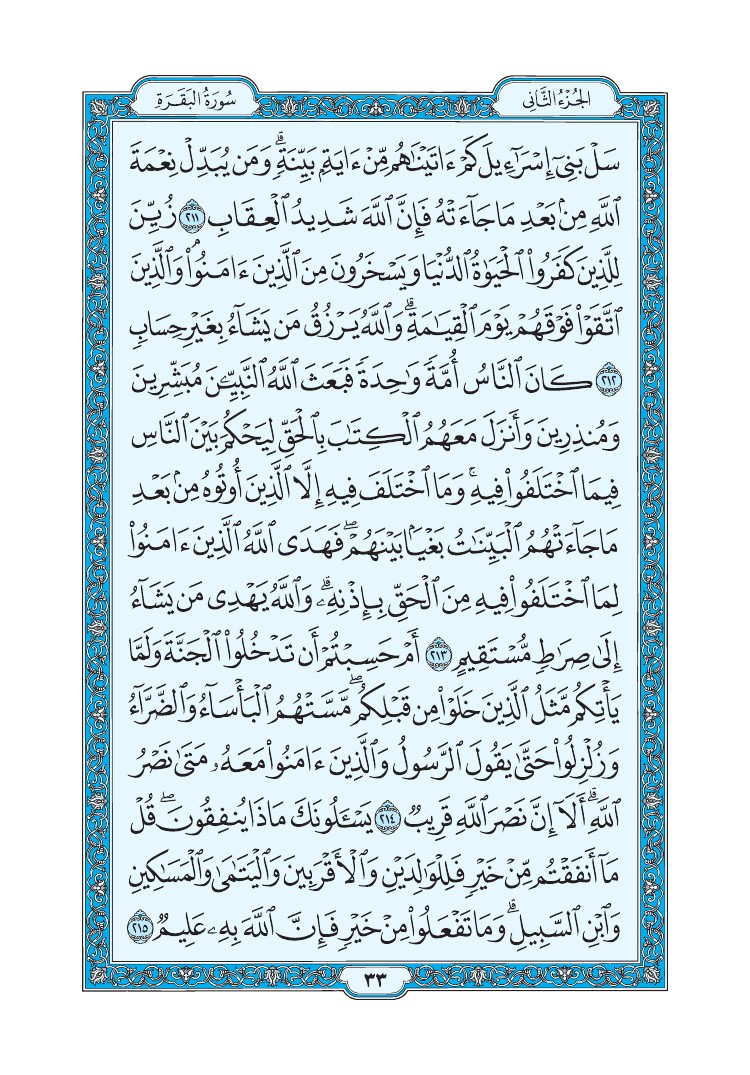 الجُزْءُ الثَّانِي
سُورَةُ البَقَرَةِ
سَلْ بَنِىٓ إِسْرَٰٓءِيلَ كَمْ ءَاتَيْنَٰهُم مِّنْ ءَايَةٍۭ بَيِّنَةٍۗ وَمَن يُبَدِّلْ نِعْمَةَ
ٱللَّهِ مِنۢ بَعْدِ مَا جَآءَتْهُ فَإِنَّ ٱللَّهَ شَدِيدُ ٱلْعِقَابِ ٢١١ زُيِّنَ
لِلَّذِينَ كَفَرُوا۟ ٱلْحَيَوٰةُ ٱلدُّنْيَا وَيَسْخَرُونَ مِنَ ٱلَّذِينَ ءَامَنُوا۟ۘ وَٱلَّذِينَ
ٱتَّقَوْا۟ فَوْقَهُمْ يَوْمَ ٱلْقِيَٰمَةِۗ وَٱللَّهُ يَرْزُقُ مَن يَشَآءُ بِغَيْرِ حِسَابٍ
٢١٢ كَانَ ٱلنَّاسُ أُمَّةً وَٰحِدَةً فَبَعَثَ ٱللَّهُ ٱلنَّبِيِّۦنَ مُبَشِّرِينَ
وَمُنذِرِينَ وَأَنزَلَ مَعَهُمُ ٱلْكِتَٰبَ بِٱلْحَقِّ لِيَحْكُمَ بَيْنَ ٱلنَّاسِ
فِيمَا ٱخْتَلَفُوا۟ فِيهِۚ وَمَا ٱخْتَلَفَ فِيهِ إِلَّا ٱلَّذِينَ أُوتُوهُ مِنۢ بَعْدِ
مَا جَآءَتْهُمُ ٱلْبَيِّنَٰتُ بَغْيًۢا بَيْنَهُمْۖ فَهَدَى ٱللَّهُ ٱلَّذِينَ ءَامَنُوا۟
لِمَا ٱخْتَلَفُوا۟ فِيهِ مِنَ ٱلْحَقِّ بِإِذْنِهِۦۗ وَٱللَّهُ يَهْدِى مَن يَشَآءُ
إِلَىٰ صِرَٰطٍ مُّسْتَقِيمٍ ٢١٣ أَمْ حَسِبْتُمْ أَن تَدْخُلُوا۟ ٱلْجَنَّةَ وَلَمَّا
يَأْتِكُم مَّثَلُ ٱلَّذِينَ خَلَوْا۟ مِن قَبْلِكُمۖ مَّسَّتْهُمُ ٱلْبَأْسَآءُ وَٱلضَّرَّآءُ
وَزُلْزِلُوا۟ حَتَّىٰ يَقُولَ ٱلرَّسُولُ وَٱلَّذِينَ ءَامَنُوا۟ مَعَهُۥ مَتَىٰ نَصْرُ
ٱللَّهِۗ أَلَآ إِنَّ نَصْرَ ٱللَّهِ قَرِيبٌ ٢١٤ يَسْـَٔلُونَكَ مَاذَا يُنفِقُونَۖ قُلْ
مَآ أَنفَقْتُم مِّنْ خَيْرٍ فَلِلْوَٰلِدَيْنِ وَٱلْأَقْرَبِينَ وَٱلْيَتَٰمَىٰ وَٱلْمَسَٰكِينِ
وَٱبْنِ ٱلسَّبِيلِۗ وَمَا تَفْعَلُوا۟ مِنْ خَيْرٍ فَإِنَّ ٱللَّهَ بِهِۦ عَلِيمٌ ٢١٥
٣٣